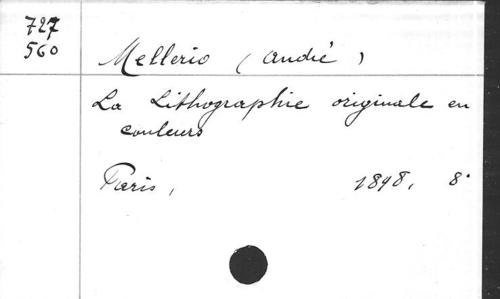 727
560
Mellerio (André)
La Lithographie originale en
couleurs
Paris, 1898, 8°